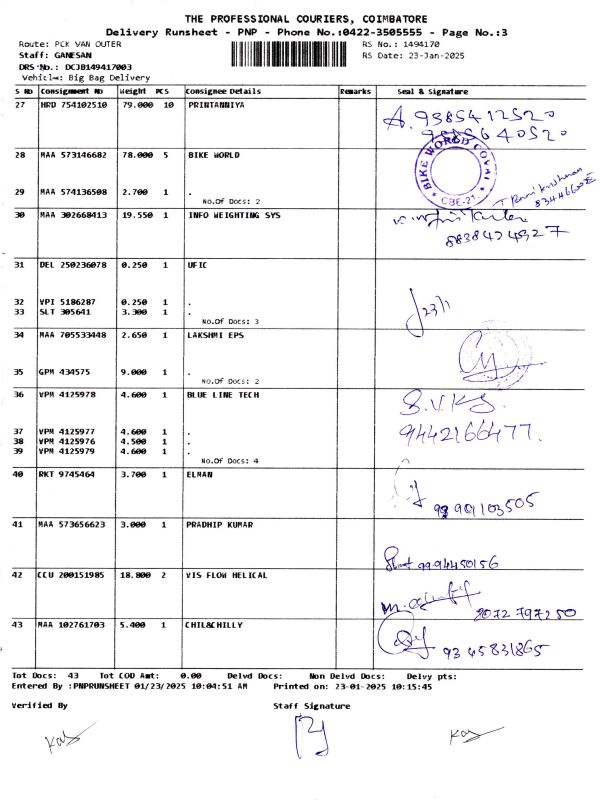 THE PROFESSIONAL COURIERS, COIMBATORE
Delivery Runsheet - PNP - Phone No.:0422-3505555 - Page No.:3
Route: PCK VAN OUTER RS No.: 1494170
Staff: GANESAN RS Date: 23-Jan-2025
DRS No.: DCJB149417003
Vehicle: Big Bag Delivery
S NO Consignment NO Weight PCS Consignee Details Remarks Seal & Signature
27 HRD 754102510 79.000 10 PRINTANNIYA
A. 9385412520
28 MAA 573146682 78.000 5 BIKE WORLD
BIKE WORLD COVAI
CBE-21
29 MAA 574136508 2.700 1 .
No.Of Docs: 2
30 MAA 302668413 19.550 1 INFO WEIGHTING SYS
8838424927
31 DEL 250236078 0.250 1 UFIC
32 VPI 5186287 0.250 1 .
33 SLT 305641 3.300 1 .
23/1
No.Of Docs: 3
34 MAA 705533448 2.650 1 LAKSHMI EPS
35 GPM 434575 9.000 1 .
No.Of Docs: 2
36 VPM 4125978 4.600 1 BLUE LINE TECH
S.V.KS.
37 VPM 4125977 4.600 1 .
38 VPM 4125976 4.500 1 .
39 VPM 4125979 4.600 1 .
9442166477.
No.Of Docs: 4
40 RKT 9745464 3.700 1 ELMAN
41 MAA 573656623 3.000 1 PRADHIP KUMAR
9994450156
42 CCU 200151985 18.800 2 VIS FLOW HELICAL
8072797250
43 MAA 102761703 5.400 1 CHIL&CHILLY
9345831865
Tot Docs: 43 Tot COD Amt: 0.00 Delvd Docs: Non Delvd Docs: Delvy pts:
Entered By :PNPRUNSHEET 01/23/2025 10:04:51 AM Printed on: 23-01-2025 10:15:45
Verified By Staff Signature